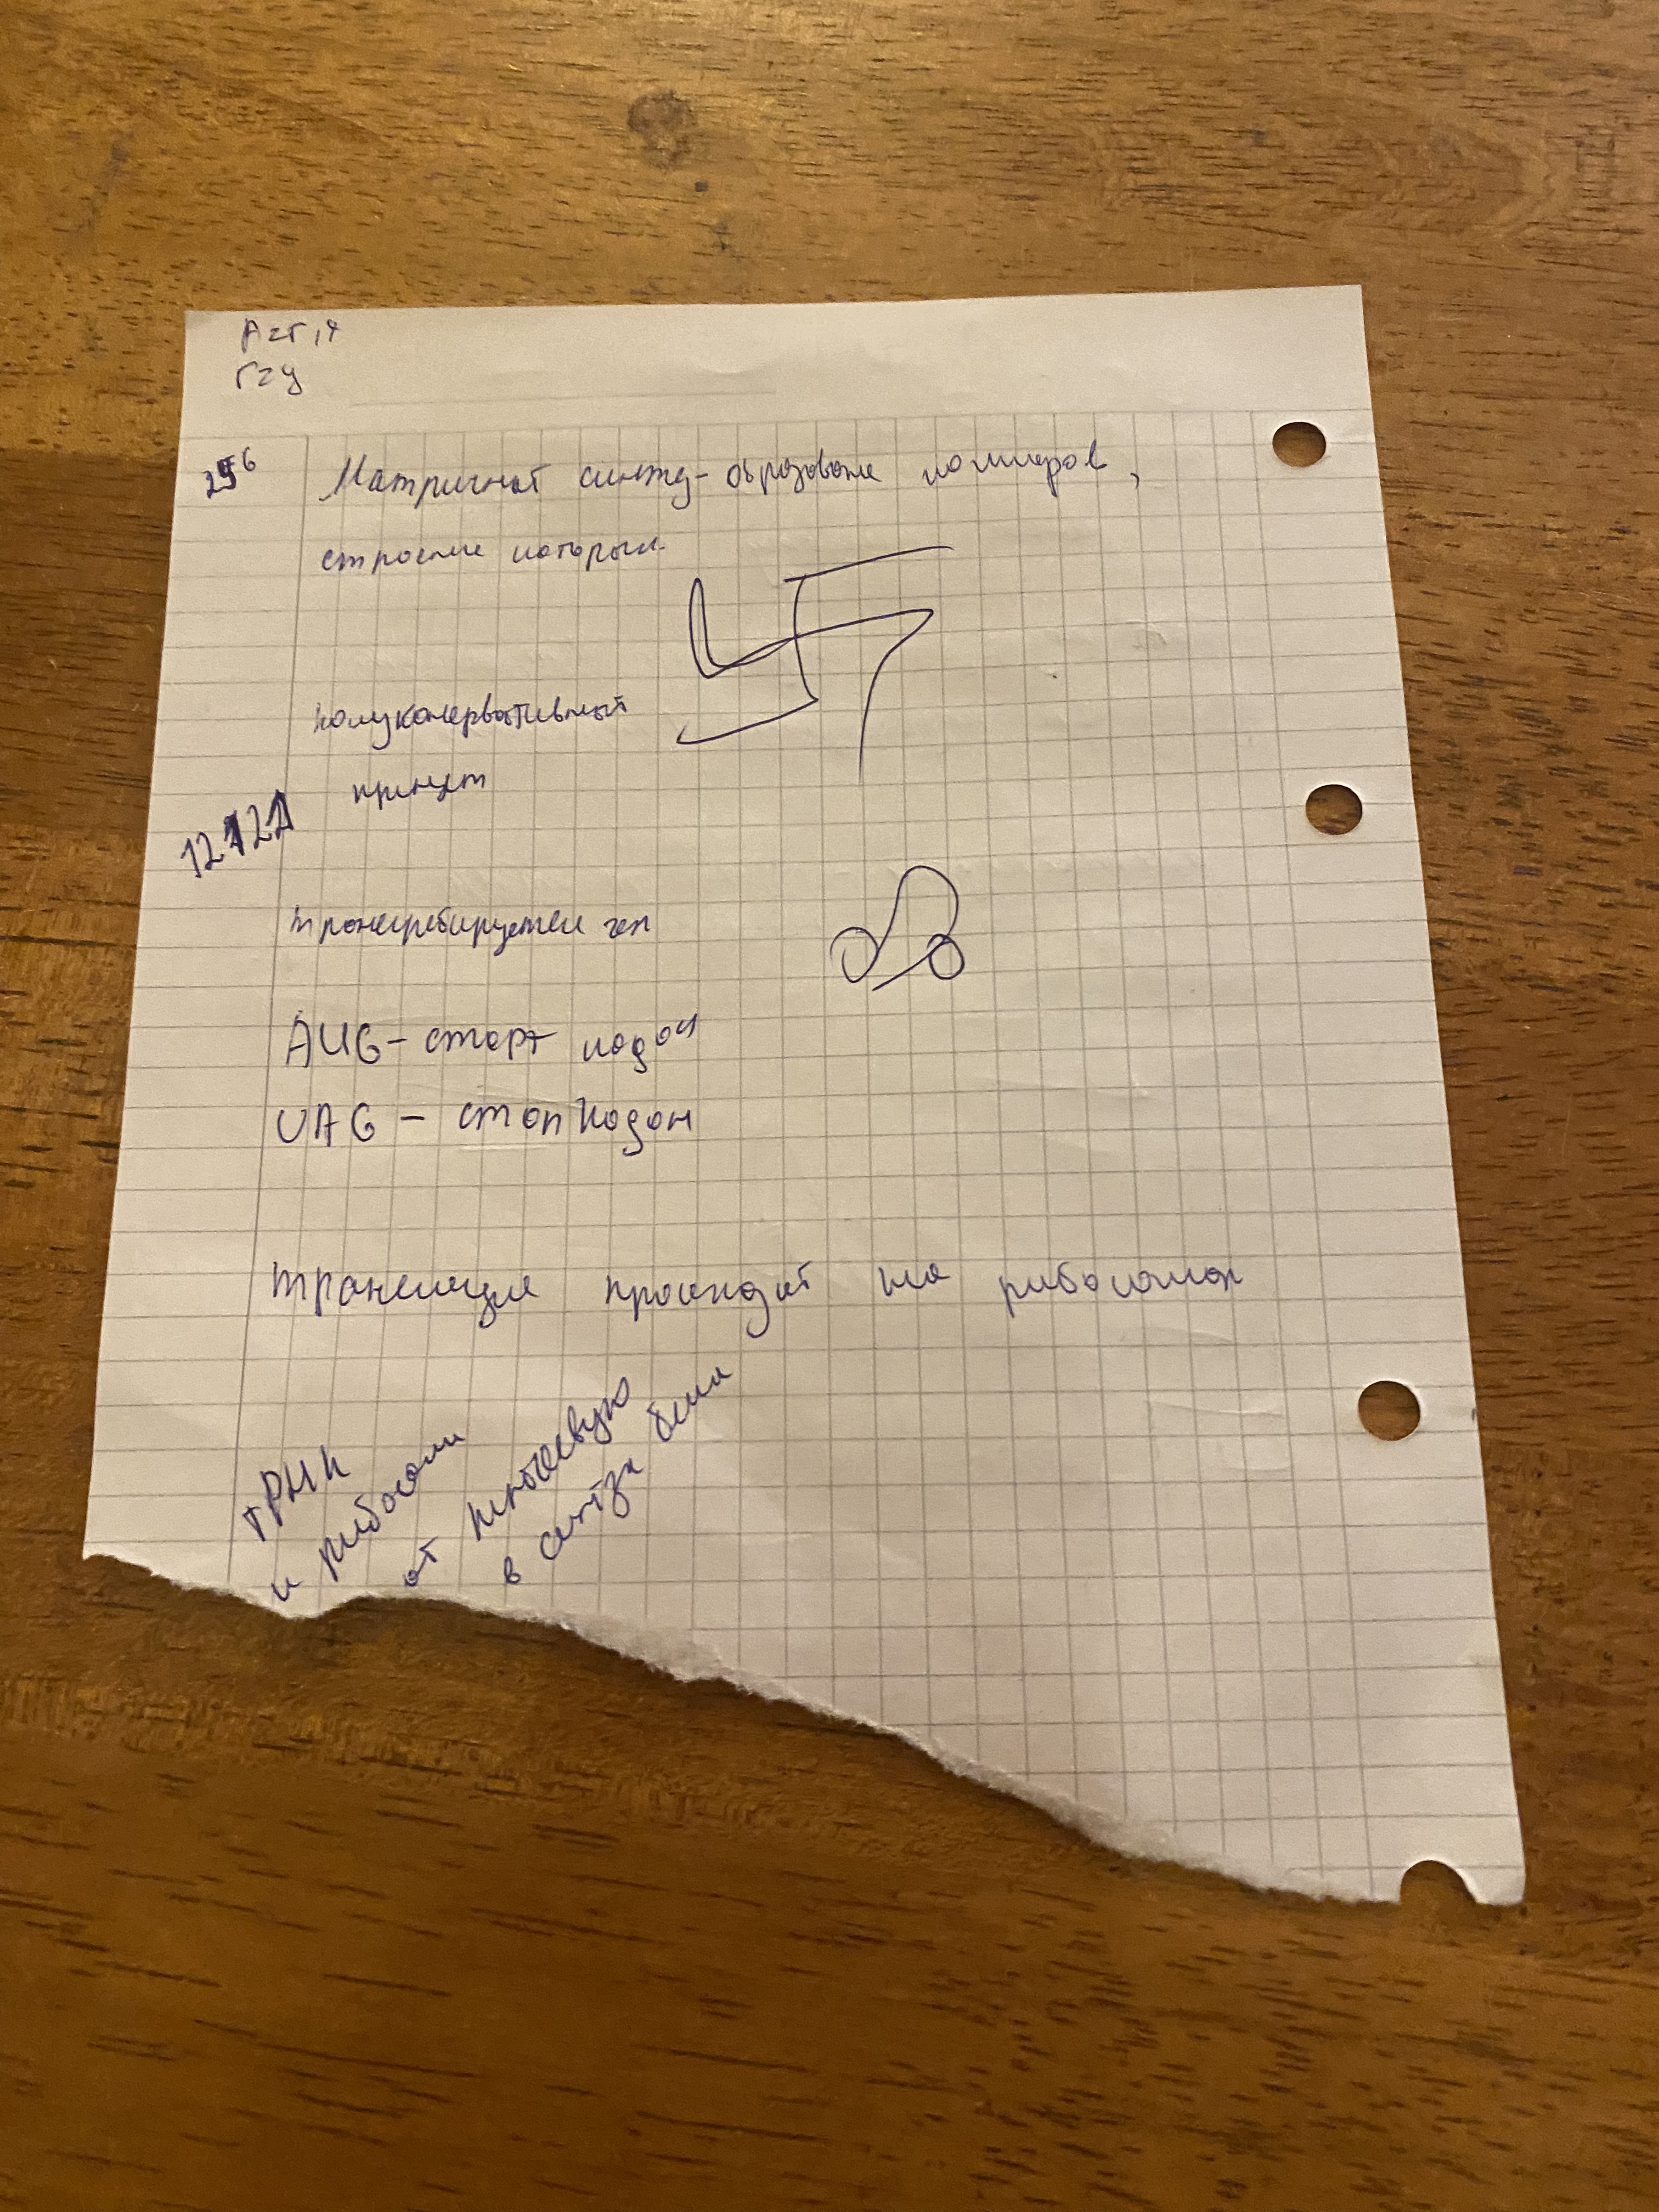 А=Т,
Г=У
Матричный синтез - образование полимеров,
строение которых
полуконсервативный
принцип
12
транскрибируется ген
AUG - старт кодон
UAG - стоп кодон
трансляция происходит на рибосомах
тРНК
и рибосомы
от
в синтза белка